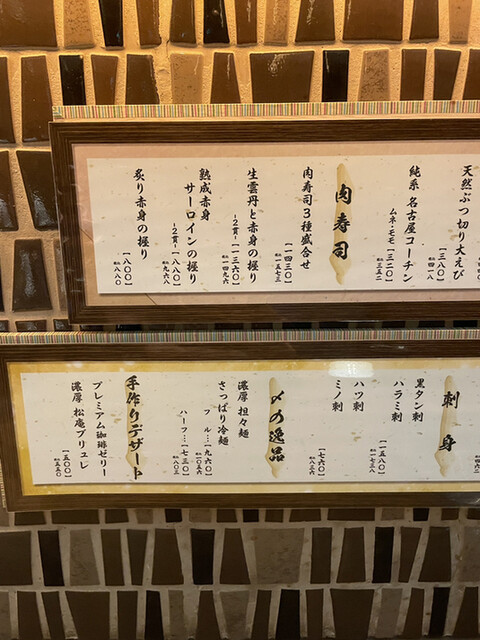 天然ぶつ切り大えび
[三八〇]
税込 四一八
純系 名古屋コーチン
ムネ・モモ [三二〇]
税込 三五二
肉寿司
肉寿司3種盛合せ
[一四三〇]
税込 一五七三
生雲丹と赤身の握り
-2貫- [一三六〇]
税込 一四九六
熟成赤身
サーロインの握り
-2貫- [八八〇]
税込 九六八
炙り赤身の握り
[八〇〇]
税込 八八〇
刺身
黒タン刺
ハラミ刺
[一五八〇]
税込 一七三八
ハツ刺
ミノ刺
[七六〇]
税込 八三六
〆の逸品
濃厚 担々麺
さっぱり冷麺
フル… [九六〇]
税込 一〇五六
ハーフ… [七三〇]
税込 八〇三
手作りデザート
プレミアム珈琲ゼリー
濃厚 松庵ブリュレ
[五〇〇]
税込 五五〇